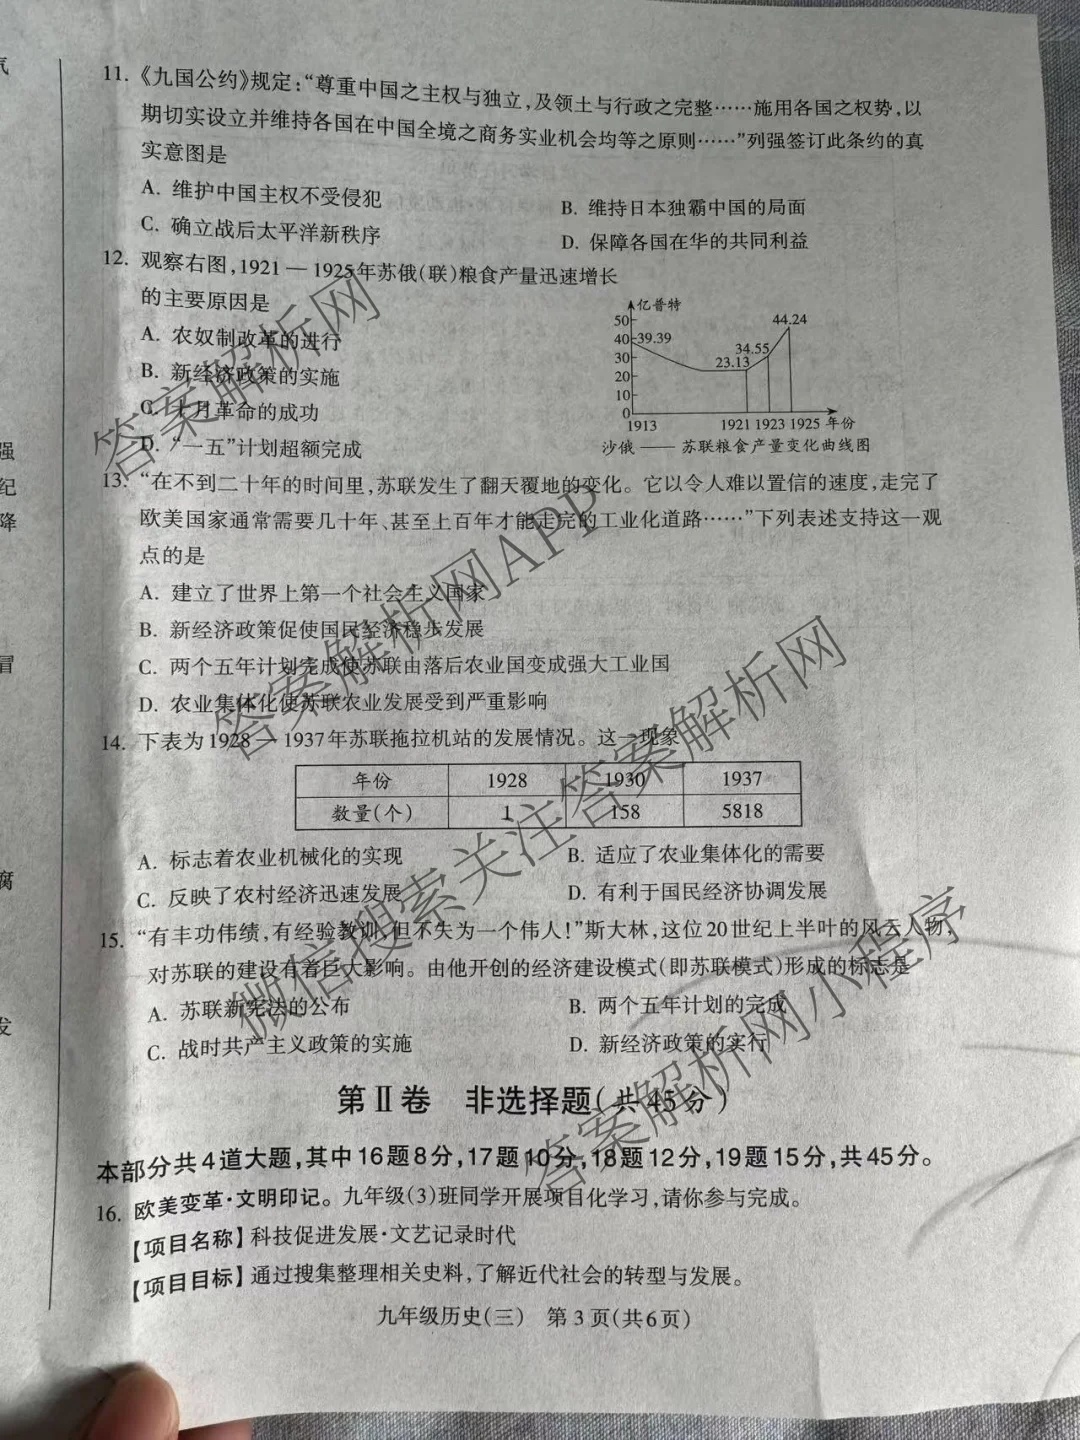 气
强
纪
降
冒
腐
发
11. 《九国公约》规定：“尊重中国之主权与独立，及领土与行政之完整……施用各国之权势，以
期切实设立并维持各国在中国全境之商务实业机会均等之原则……”列强签订此条约的真
实意图是
A. 维护中国主权不受侵犯
B. 维持日本独霸中国的局面
C. 确立战后太平洋新秩序
D. 保障各国在华的共同利益
12. 观察右图，1921—1925年苏俄(联)粮食产量迅速增长
的主要原因是
A. 农奴制改革的进行
B. 新经济政策的实施
C. 十月革命的成功
D. “一五”计划超额完成
亿普特
50
40
30
20
10
0
39.39
23.13
34.55
44.24
1913 1921 1923 1925 年份
沙俄——苏联粮食产量变化曲线图
13. “在不到二十年的时间里，苏联发生了翻天覆地的变化。它以令人难以置信的速度，走完了
欧美国家通常需要几十年、甚至上百年才能走完的工业化道路……”下列表述支持这一观
点的是
A. 建立了世界上第一个社会主义国家
B. 新经济政策促使国民经济稳步发展
C. 两个五年计划完成使苏联由落后农业国变成强大工业国
D. 农业集体化使苏联农业发展受到严重影响
14. 下表为1928—1937年苏联拖拉机站的发展情况。这一现象
年份 1928 1930 1937
数量(个) 1 158 5818
A. 标志着农业机械化的实现
B. 适应了农业集体化的需要
C. 反映了农村经济迅速发展
D. 有利于国民经济协调发展
15. “有丰功伟绩，有经验教训，但不失为一个伟人！”斯大林，这位20世纪上半叶的风云人物，
对苏联的建设有着巨大影响。由他开创的经济建设模式(即苏联模式)形成的标志是
A. 苏联新宪法的公布
B. 两个五年计划的完成
C. 战时共产主义政策的实施
D. 新经济政策的实行
第Ⅱ卷 非选择题(共45分)
本部分共4道大题，其中16题8分，17题10分，18题12分，19题15分，共45分。
16. 欧美变革·文明印记。九年级(3)班同学开展项目化学习，请你参与完成。
【项目名称】科技促进发展·文艺记录时代
【项目目标】通过搜集整理相关史料，了解近代社会的转型与发展。
九年级历史(三) 第3页(共6页)
答案解析网
答案解析网APP
微信搜索关注答案解析网
答案解析网小程序